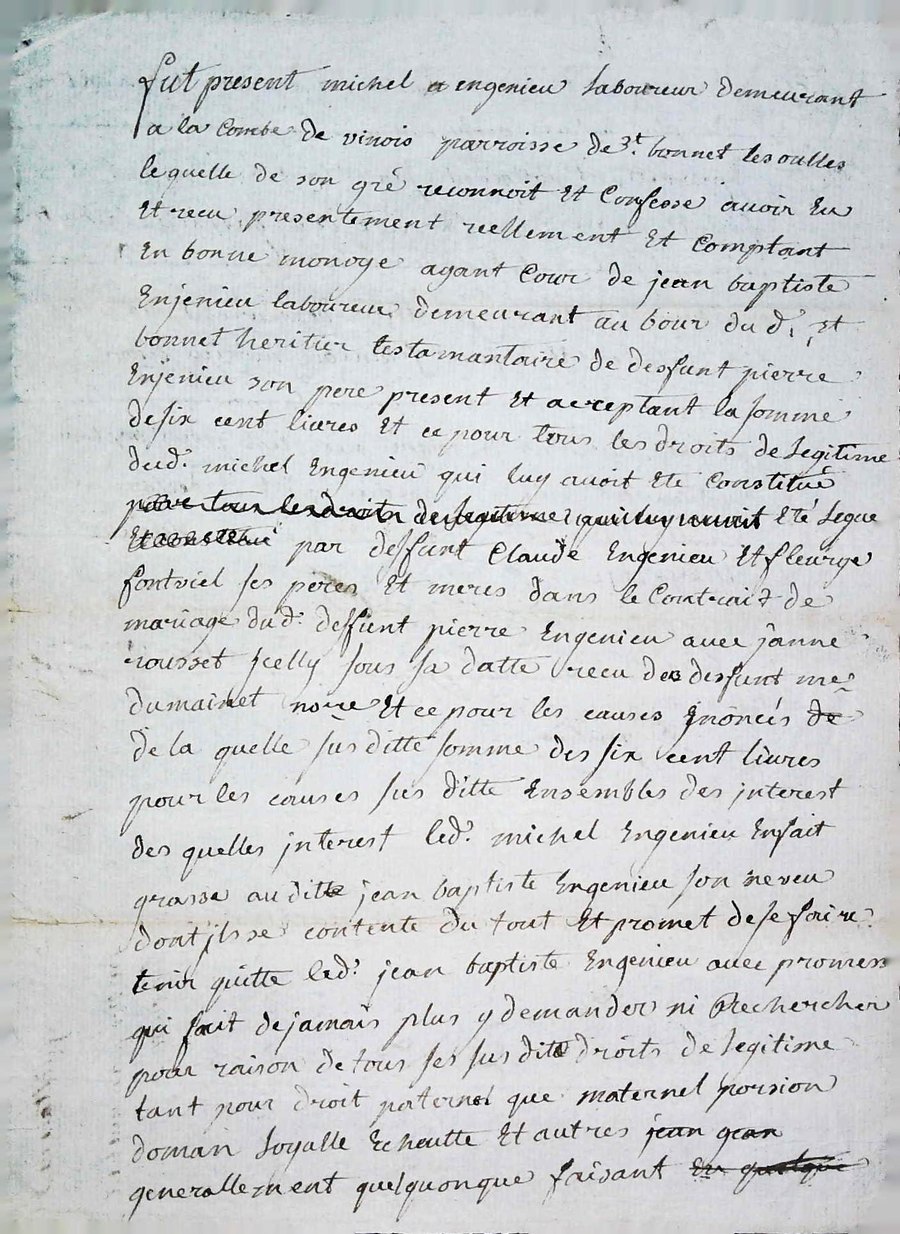 fut present michel a engenieu laboureur demeurant
a la Combe de vinois parroisse de st. bonnet les oulles
lequelle de son gré reconnoit Et Confesse auoir Eu
Et recu presentement reellement Et Comptant
En bonne monoye ayant Cour de jean baptiste
Enjenieu laboureur demeurant au bour du d. st
bonnet heritier testamantaire de deffunt pierre
Enjenieu son pere present Et acceptant la somme
de six cent liures Et ce pour tous les droits de legitime
dud. michel Engenieu qui luy auoit Ete Constitué
pour tous les droits de legitime qui luy auoit Eté legue
Et constitué par deffunt Claude Engenieu Et fleurye
fontviel ses peres Et meres dans le Contrait de
mariage dud. deffunt pierre Engenieu auec janne
rousset scelly sous sa datte recu des deffunt me
dumainet nore Et ce pour les causes Enoncés de
de la quelle sus ditte somme des six cent liures
pour les causes sus ditte Ensembles des jnterest
des quelles jnterest led. michel Engenieu En fait
grasse au ditte jean baptiste Engenieu son neveu
dont jl se contente du tout Et promet de se faire
tenir quitte led. jean baptiste Engenieu auec promess
qui fait de jamais plus y demander ni Rechercher
pour raison de tous ses sus dite droits de legitime
tant pour droit paternel que maternel porsion
doman loyalle Echeutte Et autres jean gean
generallement quelquonque faisant En quelque